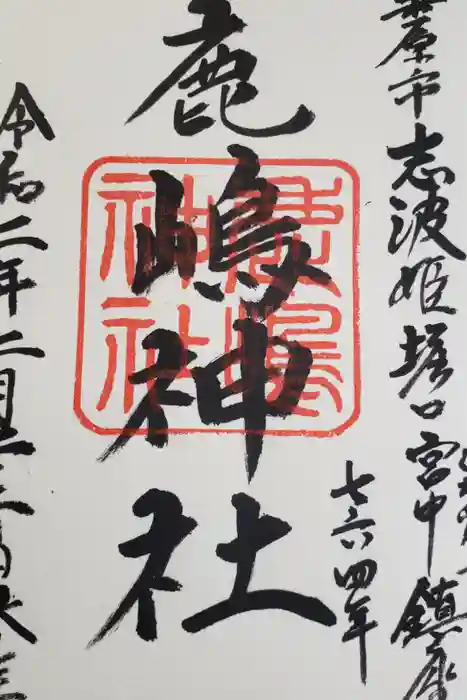 栗原市志波姫堀口宮中鎮座
七六四年
鹿嶋神社
鹿嶋神社
令和二年二月